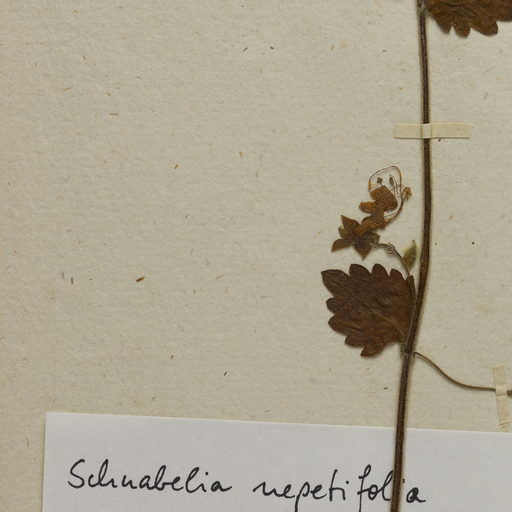 Schnabelia nepetifolia